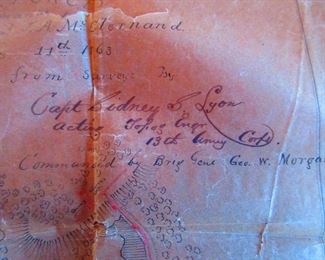 J.A. McClernand
11th 1863
from Surveys By
Capt Sidney S. Lyon
acting Topog Engr
13th Army Corps.
Commanded by Brig Genl Geo. W. Morgan